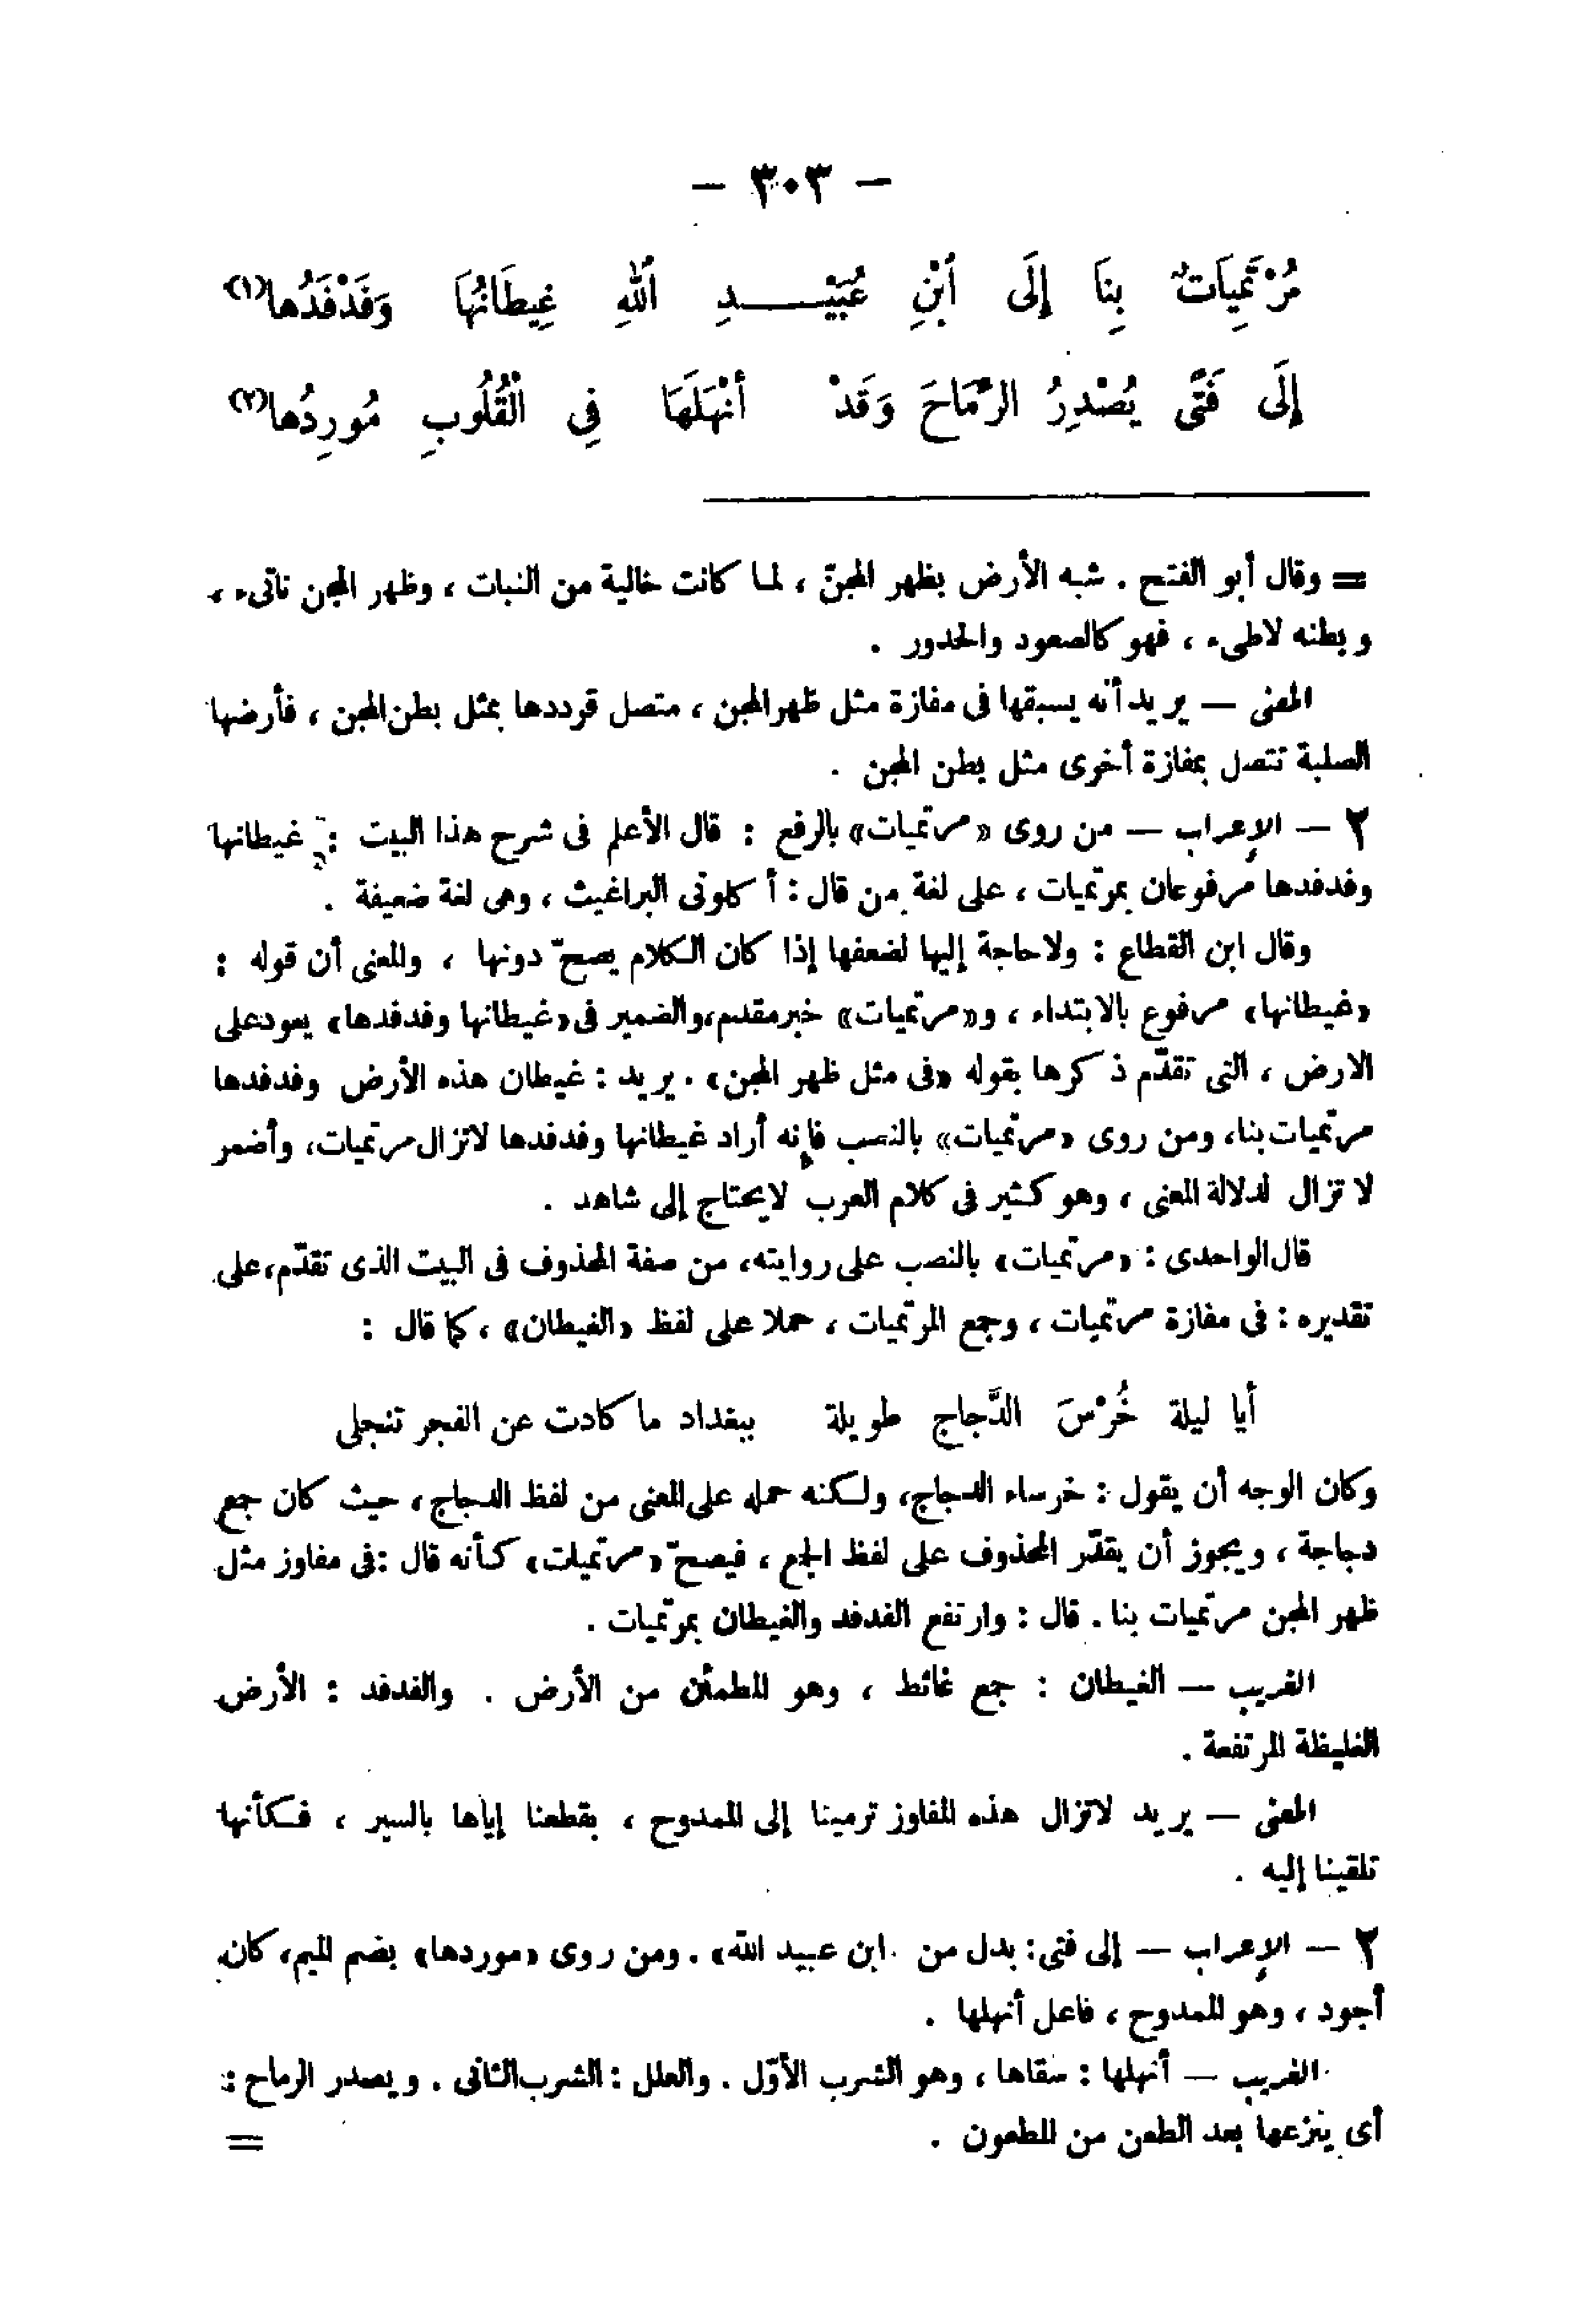 — ٣٠٣ —
مُرْتَمِيَاتٌ بِنَا إِلَى ٱبْنِ عُبَيْـــــدِ ٱللهِ غِيطَانُهَا وَفَدْفَدُها(١)
إِلَى فَتًى يُصْدِرُ الرِّمَاحَ وَقَدْ أَنْهَلَهَا فِى الْقُلُوبِ مُورِدُها(٢)
= وقال أبو الفتح . شبه الأرض بظهر المجنّ ، لما كانت خالية من النبات ، وظهر المجن ناتىء ،
وبطنه لاطىء ، فهو كالصعود والحدور .
المعنى — يريد أنه يسبقها فى مفازة مثل ظهر المجن ، متصل قرددها بمثل بطن المجن ، فأرضها
الصلبة تتصل بمفازة أخرى مثل بطن المجن .
٢ — الإعراب — من روى «مرتميات» بالرفع : قال الأعلم فى شرح هذا البيت : غيطانها
وفدفدها مرفوعان بمرتميات ، على لغة من قال : أكلونى البراغيث ، وهى لغة ضعيفة .
وقال ابن القطاع : ولا حاجة إليها لضعفها إذا كان الكلام يصحّ دونها ، والمعنى أن قوله :
«غيطانها» مرفوع بالابتداء ، و«مرتميات» خبر مقدم، والضمير فى «غيطانها وفدفدها» يعود على
الارض ، التى تقدّم ذكرها بقوله «فى مثل ظهر المجن» . يريد : غيطان هذه الأرض وفدفدها
مرتميات بنا، ومن روى «مرتميات» بالنصب فإنه أراد غيطانها وفدفدها لاتزال مرتميات، وأضمر
لا تزال لدلالة المعنى ، وهو كثير فى كلام العرب لايحتاج إلى شاهد .
قال الواحدى : «مرتميات» بالنصب على روايته، من صفة المحذوف فى البيت الذى تقدّم، على
تقديره : فى مفازة مرتميات ، وجمع المرتميات ، حملا على لفظ «الغيطان» ، كما قال :
أيا ليلة خُرْسَ الدَّجاج طويلة ببغداد ما كادت عن الفجر تنجلى
وكان الوجه أن يقول : خرساء الدجاج، ولكنه حمله على المعنى من لفظ الدجاج ، حيث كان جمع
دجاجة ، ويجوز أن يقدّر المحذوف على لفظ الجمع ، فيصحّ «مرتميات» كأنه قال : فى مفاوز مثل
ظهر المجن مرتميات بنا . قال : وارتفع الفدفد والغيطان بمرتميات .
الغريب — الغيطان : جمع غائط ، وهو المطمئن من الأرض . والفدفد : الأرض
الغليظة المرتفعة .
المعنى — يريد لاتزال هذه المفاوز ترمينا إلى الممدوح ، بقطعنا إياها بالسير ، فكأنها
تلقينا إليه .
٢ — الإعراب — إلى فتى : بدل من ابن عبيد الله» . ومن روى «موردها» بضم الميم، كان
أجود ، وهو الممدوح ، فاعل أنهلها .
الغريب — أنهلها : سقاها ، وهو الشرب الأوّل . والعلل : الشرب الثانى . ويصدر الرماح :
أى ينزعها بعد الطعن من المطعون .
=